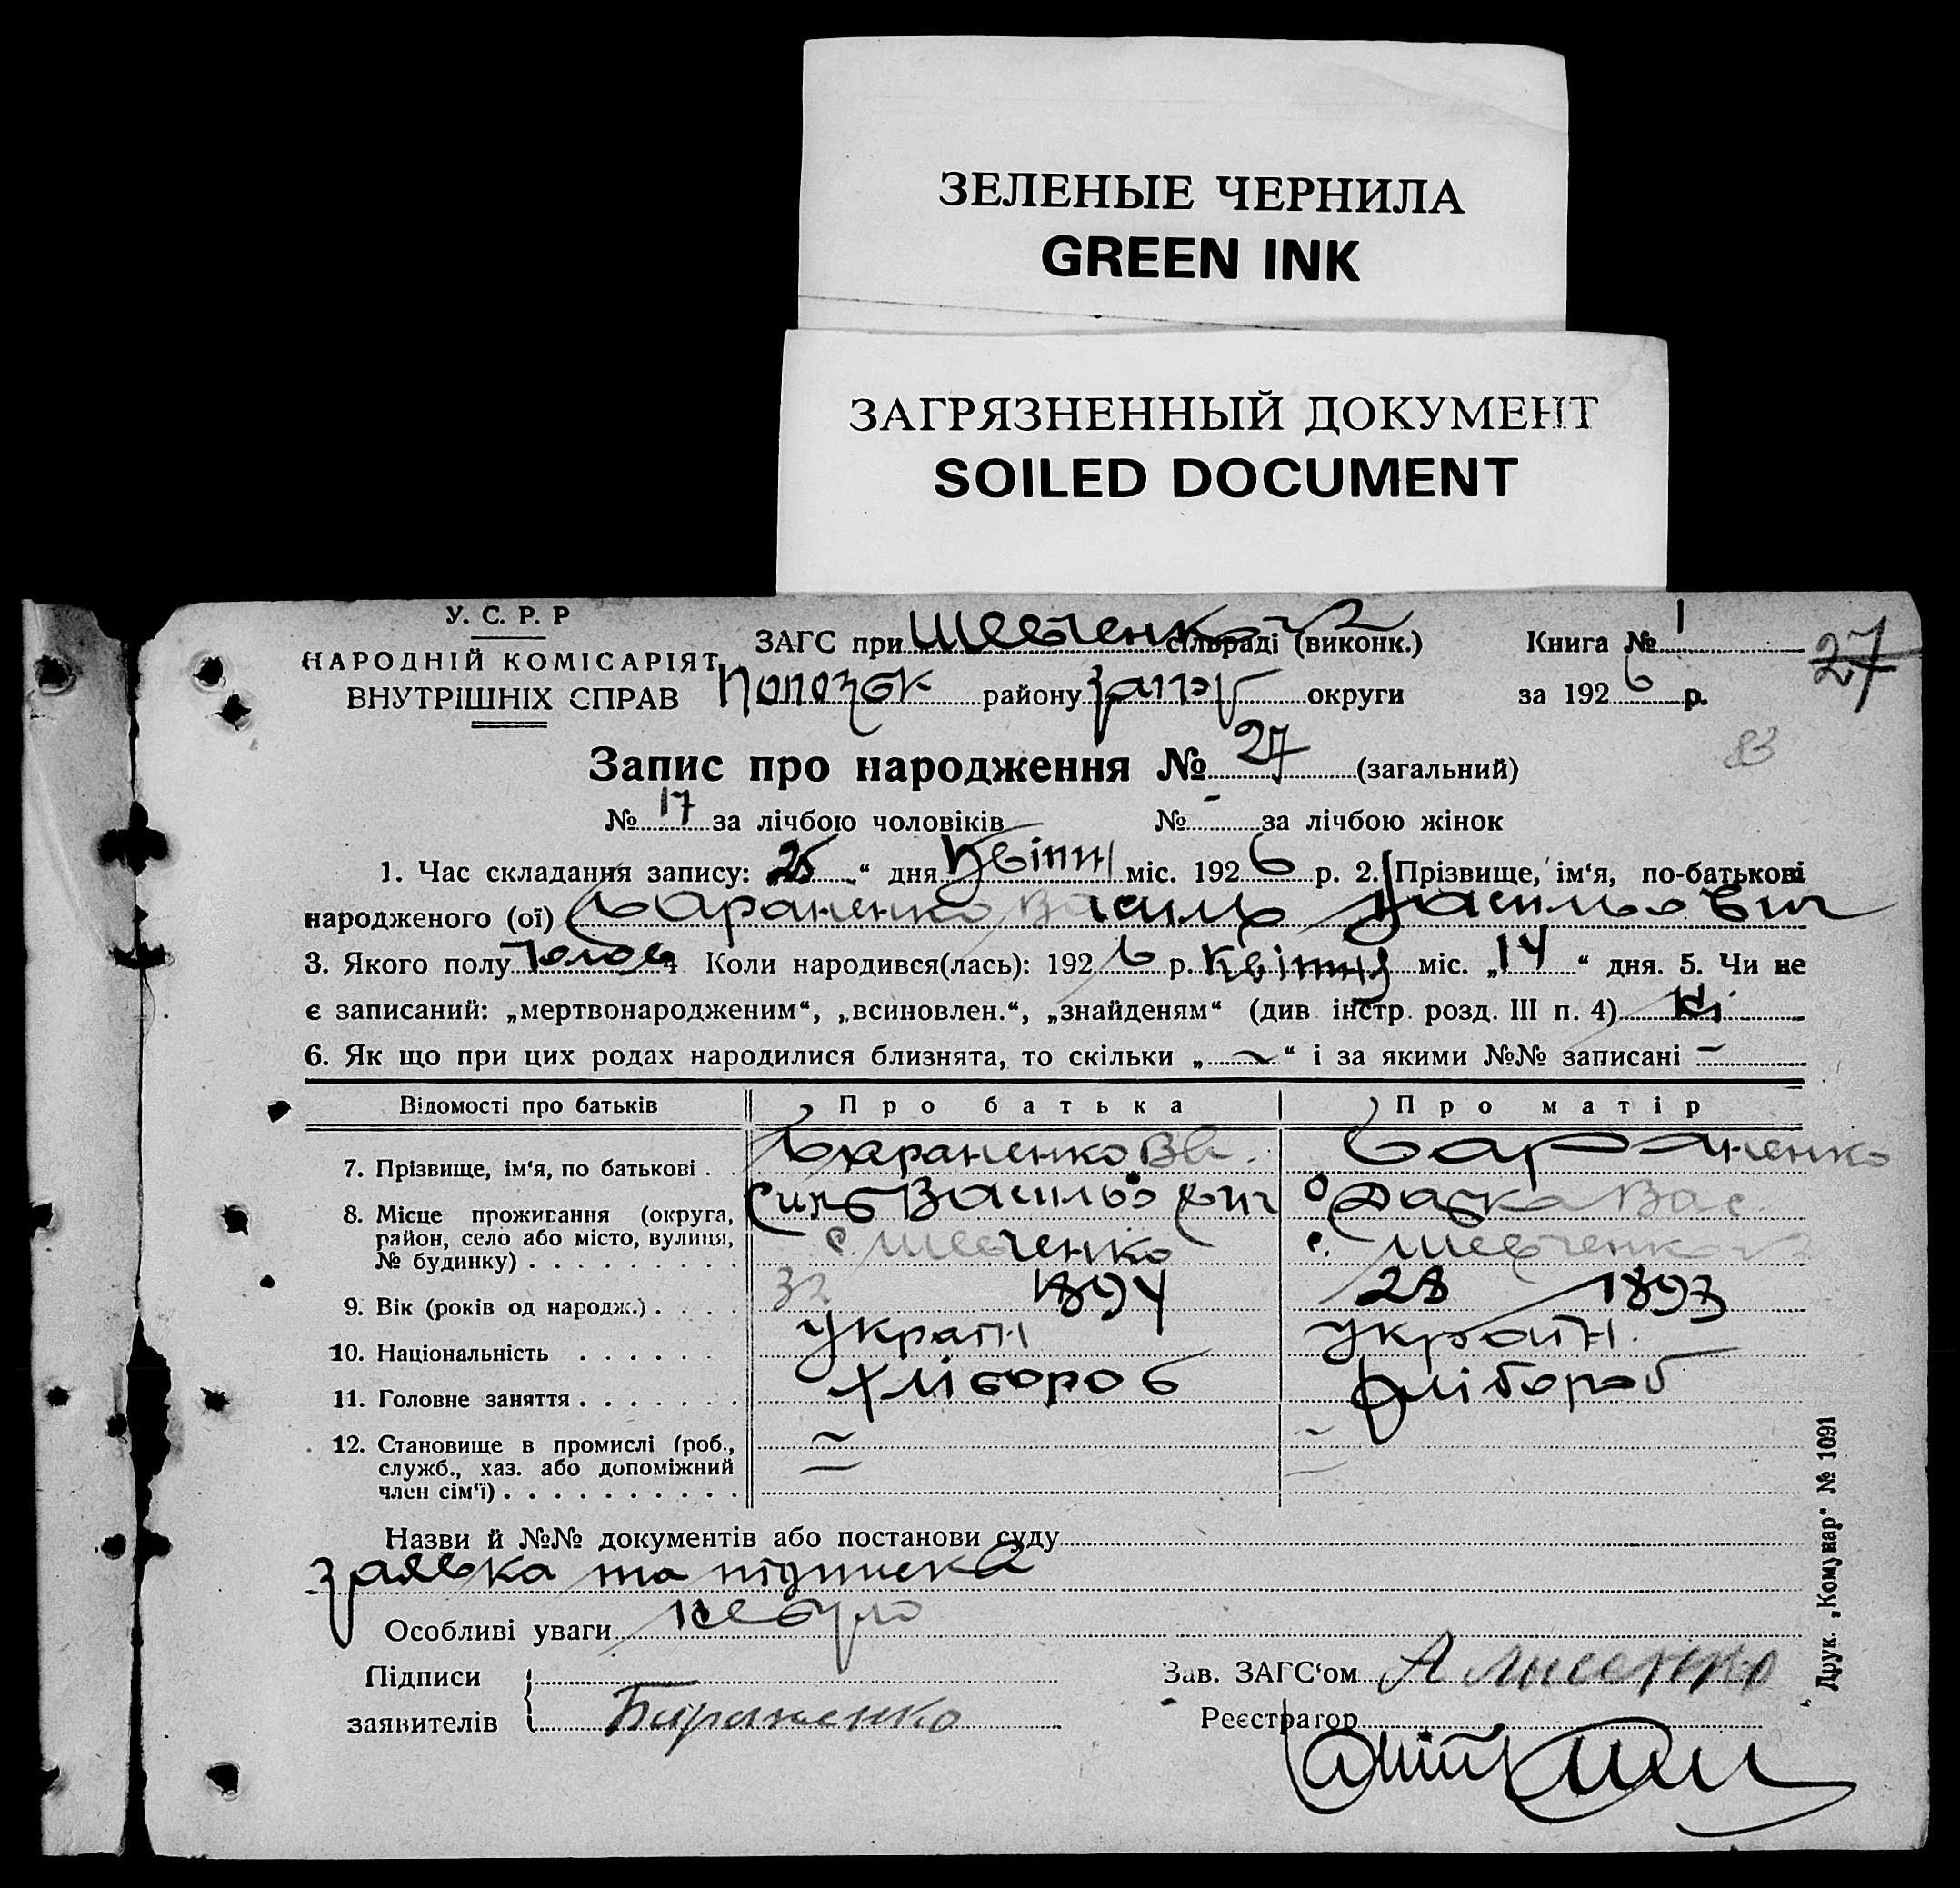 ЗЕЛЕНЫЕ ЧЕРНИЛА
GREEN INK
ЗАГРЯЗНЕННЫЙ ДОКУМЕНТ
SOILED DOCUMENT
У. С. Р. Р
НАРОДНІЙ КОМІСАРІЯТ
ВНУТРІШНІХ СПРАВ
ЗАГС при Шевченк сільраді (виконк.)
Книга № 1
27
району Запоріз округи
за 192 6 р.
83
Запис про народження № 27 (загальний)
№ 17 за лічбою чоловіків № - за лічбою жінок
1. Час складання запису: „25“ дня Квітн міс. 192 6 р. 2. Прізвище, ім‘я, по-батькові
народженого (ої) Бараненко Василь Васильович
3. Якого полу Чолов 4 Коли народився(лась): 192 6 р. Квітня міс. „14“ дня. 5. Чи не
є записаний: „мертвонародженим“, „всиновлен.“, „знайденям“ (див інстр. розд. III п. 4) Ні
6. Як що при цих родах народилися близнята, то скільки „ — “ і за якими №№ записані —
Відомості про батьків Про батька Про матір
7. Прізвище, ім‘я, по батькові . Бараненко Ва Бараненко
8. Місце проживання (округа, силь Васильович Одарка Вас.
район, село або місто, вулиця,
№ будинку) . . . . . . . . . с. Шевченко с. Шевченко
9. Вік (років од народж.) . . . 32 1894 28 1897
10. Національність . . . . . . Україн Україн.
11. Головне заняття . . . . . . . Хлібороб Хлібороб
12. Становище в промислі (роб., — —
служб., хаз. або допоміжний — —
член сім‘ї) . . . . . . . . . .
Назви й №№ документів або постанови суду
заявка та підписка
Особливі уваги не було
Підписи
заявителів
Бараненко
Зав. ЗАГС‘ом А Лисенко
Реєстратор
Друк. „Комунар“ № 1091